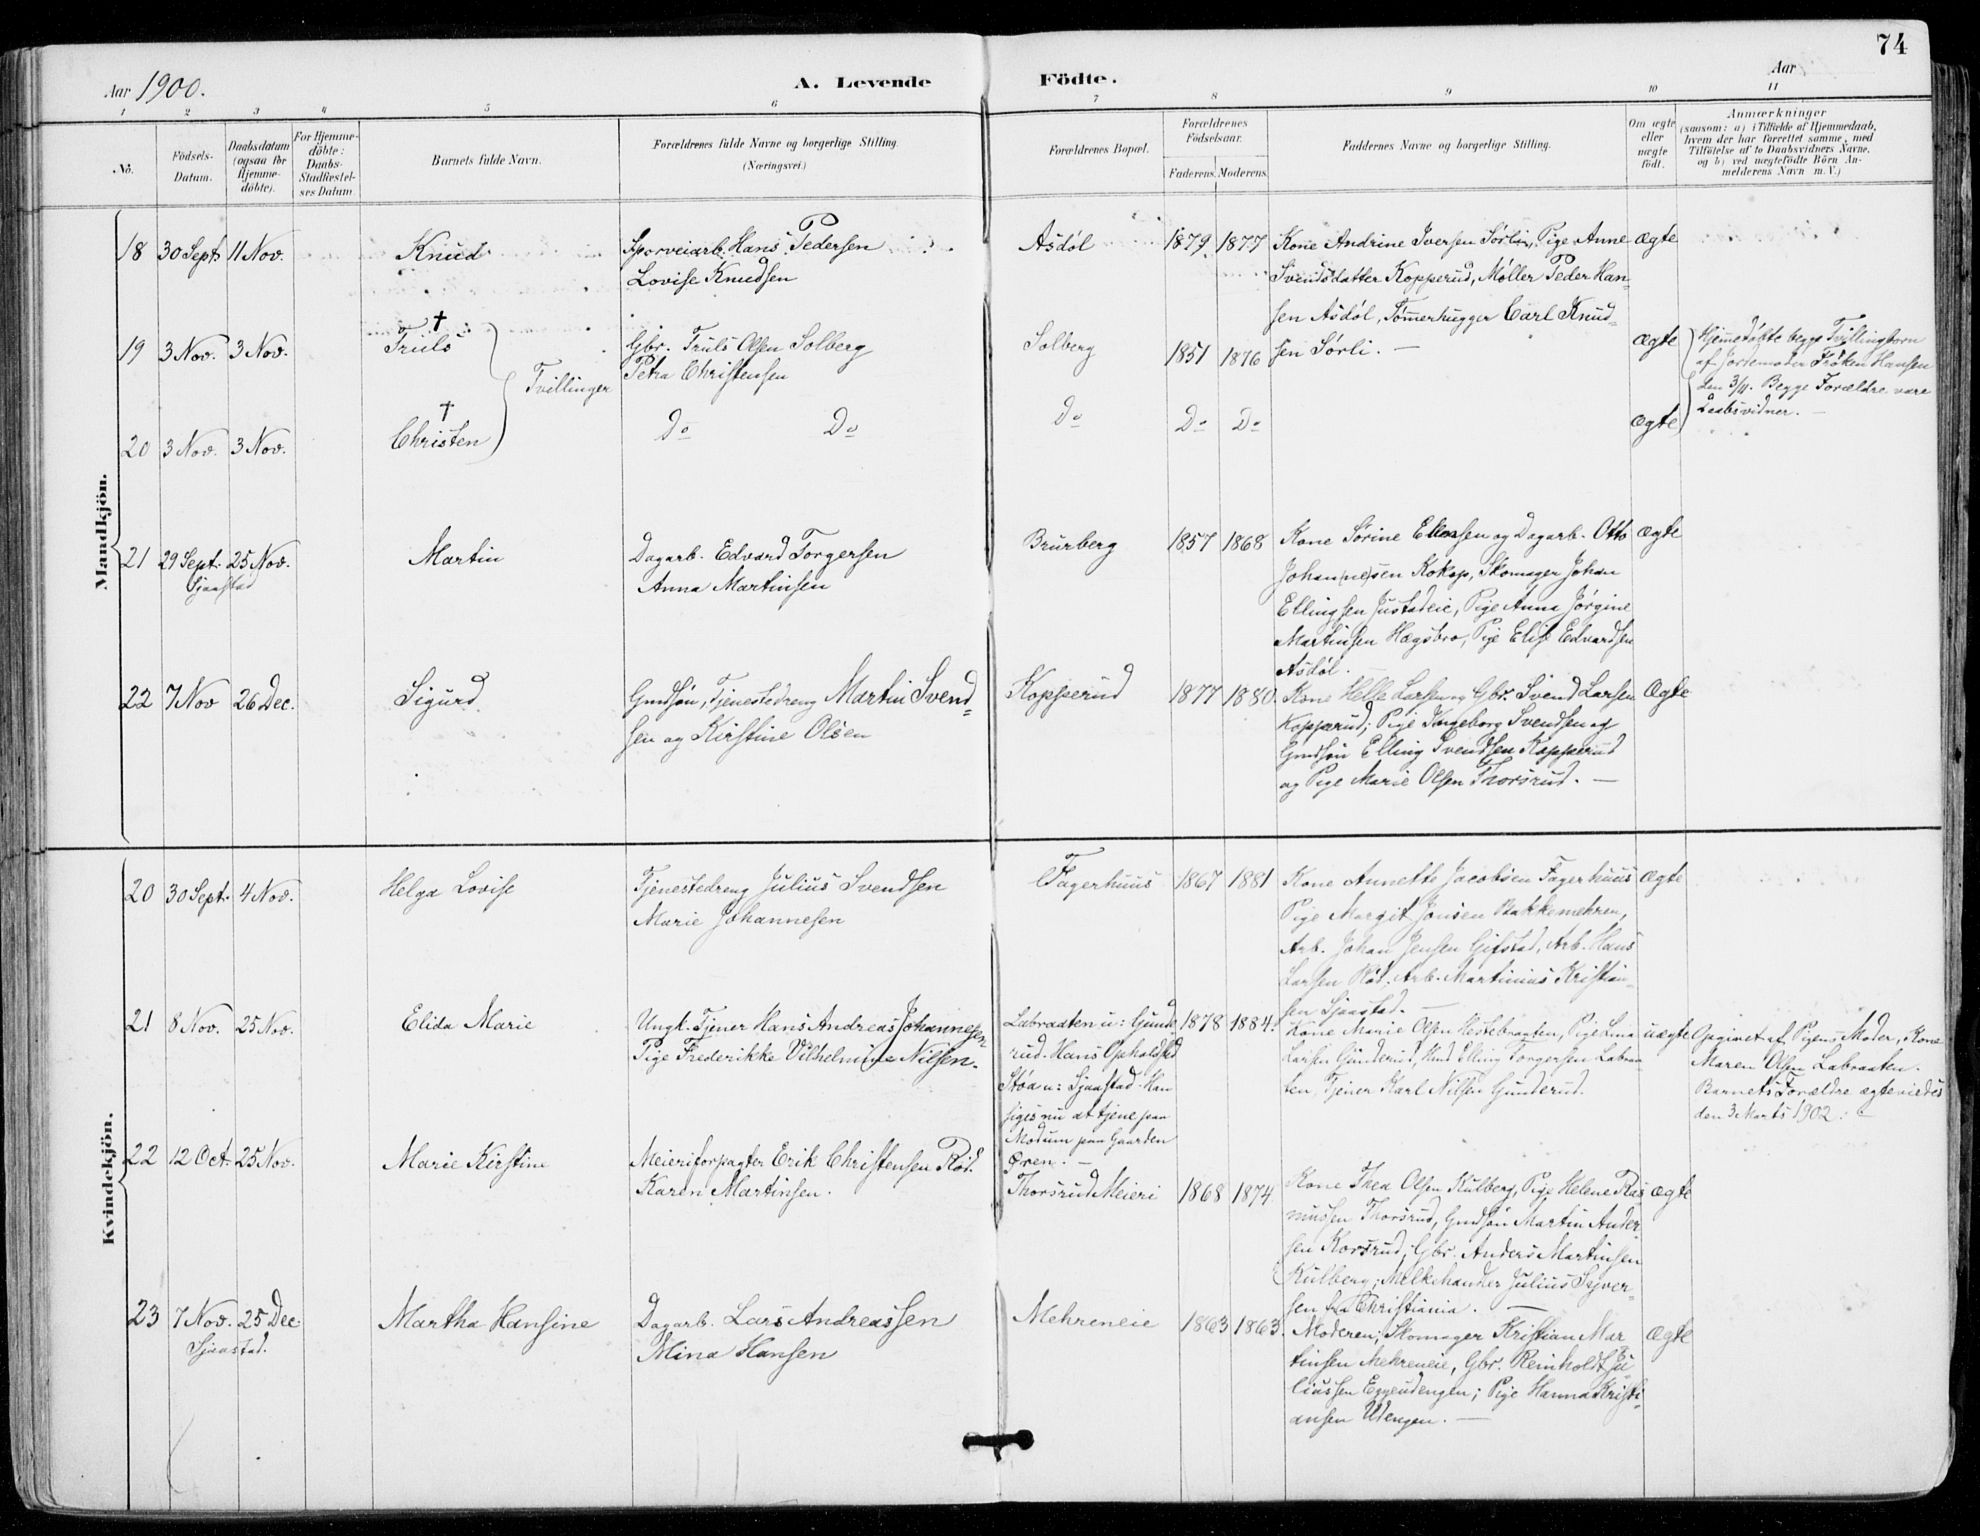 74
Aar 1900.
A. Levende Födte.
Aar
1 2 3 4 5 6 7 8 9 10 11
No.
Födsels-Datum.
Daabsdatum (ogsaa for Hjemme-döbte).
For Hjemme-döbte: Daabs-Stadfæstel-ses Datum
Barnets fulde Navn.
Forældrenes fulde Navne og borgerlige Stilling.
(Næringsvei.)
Forældrenes Bopæl.
Forældrenes Födselsaar.
Faderens. Moderens.
Faddernes Navne og borgerlige Stilling.
Om ægte eller uægte födt.
Anmærkninger
(saasom: a) i Tilfælde af Hjemmedaab,
hvem der har forrettet samme, med
Tilföielse af to Daabsvidners Navne,
og b) ved uægtefödte Börn An-
melderens Navn m. V.)
Mandkjön.
18 30 Sept 11 Nov. Knud
Sporveiarb. Hans Pedersen
Lovise Knudsen
Asdøl 1879. 1877
Kone Andrine Iversen Sørlie, Pige Anne
Svendsdatter Kopperud, Møller Peder Han-
sen Asdøl, Tømmerhugger Carl Knud-
sen Sørli. —
Ægte
19 3 Nov. 3 Nov. † Truls
Tvillinger
Gbr. Truls Olsen Solberg
Petra Christensen
Solberg 1851 1876
Ægte
Hjemmedøbte begge Tvillingbørn
af Jordemoder Frøken Hansen
den 3/11. Begge Forældre vare
Daabsvidner. —
20 3 Nov. 3 Nov. † Christen
Do Do Do Do Do
Ægte
21 29 Sept. 25 Nov. Martin
Sjaastad
Dagarb. Edvard Torgersen
Anna Martinsen
Brurberg 1857 1868
Kone Sørine Ellensen og Dagarb. Otto
Johan(ne)sen Kokop, Skomager Johan
Ellingsen Justadeie, Pige Anna Jørgine
Martinsen Hægsbro, Pige Elise Edvardsen
Asdøl.
Ægte
22 7 Nov 26 Dec. Sigurd
Gmdsøn, Tjenestedreng Martin Svend=
sen og Kirstine Olsen
Kopperud 1877 1880.
Kone Helle Larsen og Gbr. Svend Larsen
Kopperud; Pige Ingeborg Svendsen og
Gmdsøn Elling Svendsen Kopperud
og Pige Marie Olsen Thorsrud. —
Ægte
Kvindekjön.
20 30 Sept. 4 Nov. Helga Lovise
Tjenestedreng Julius Svendsen
Marie Johannesen
Fagerhuus 1867 1881
Kone Annette Jacobsen Fagerhuus
Pige Margit Jonsen Bakkemehren,
Arb. Johan Jensen Gifstad, Arb. Hans
Larsen Rød, Arb. Martinius Kristian-
sen Sjaastad. —
Ægte
21 8 Nov. 25 Nov. Elida Marie
Ungk. Tjener Hans Andreas Johannesen
Pige Frederikke Vilhelmine Nilsen.
Labraaten u: Gunde-
rud. Hans Opholdsted
Støa u: Sjaastad. Han
siges nu at tjene paa
Modum paa Gaarden
Øren. —
1878 1884.
Kone Marie Olsen Hestebraaten, Pige Lina
Larsen Gunderud, Kmd Elling Torgersen Labraa
ten, Tjener Karl Nilsen Gunderud.
uægte
Opgivet af Pigens Moder, Kone
Maren Olsen Labraaten.
Barnets Forældre ægteviedes
den 3 Marts 1902. —
22 12 Oct. 25 Nov. Marie Kirstine
Meieriforpagter Erik Christensen Rød.
Karen Martinsen.
Thorsrud Meieri 1868 1874
Kone Thea Olsen Kulberg, Pige Helene Ras
mussen Thorsrud, Gmdsøn Martin Ander-
sen Korsrud, Gbr. Anders Martinsen
Kulberg; Melkehandler Julius Syver-
sen fra Christiania. —
Ægte
23 7 Nov. 25 Dec. Martha Hansine
Sjaastad.
Dagarb. Lars Andreassen
Mina Hansen
Mehreneie 1863 1863.
Moderen; Skomager Kristian Mar
tinsen Mehreneie, Gbr. Reinholdt Ju
liussen Eggeudengen; Pige Hanna Kristi-
ansen Udengen. —
Ægte